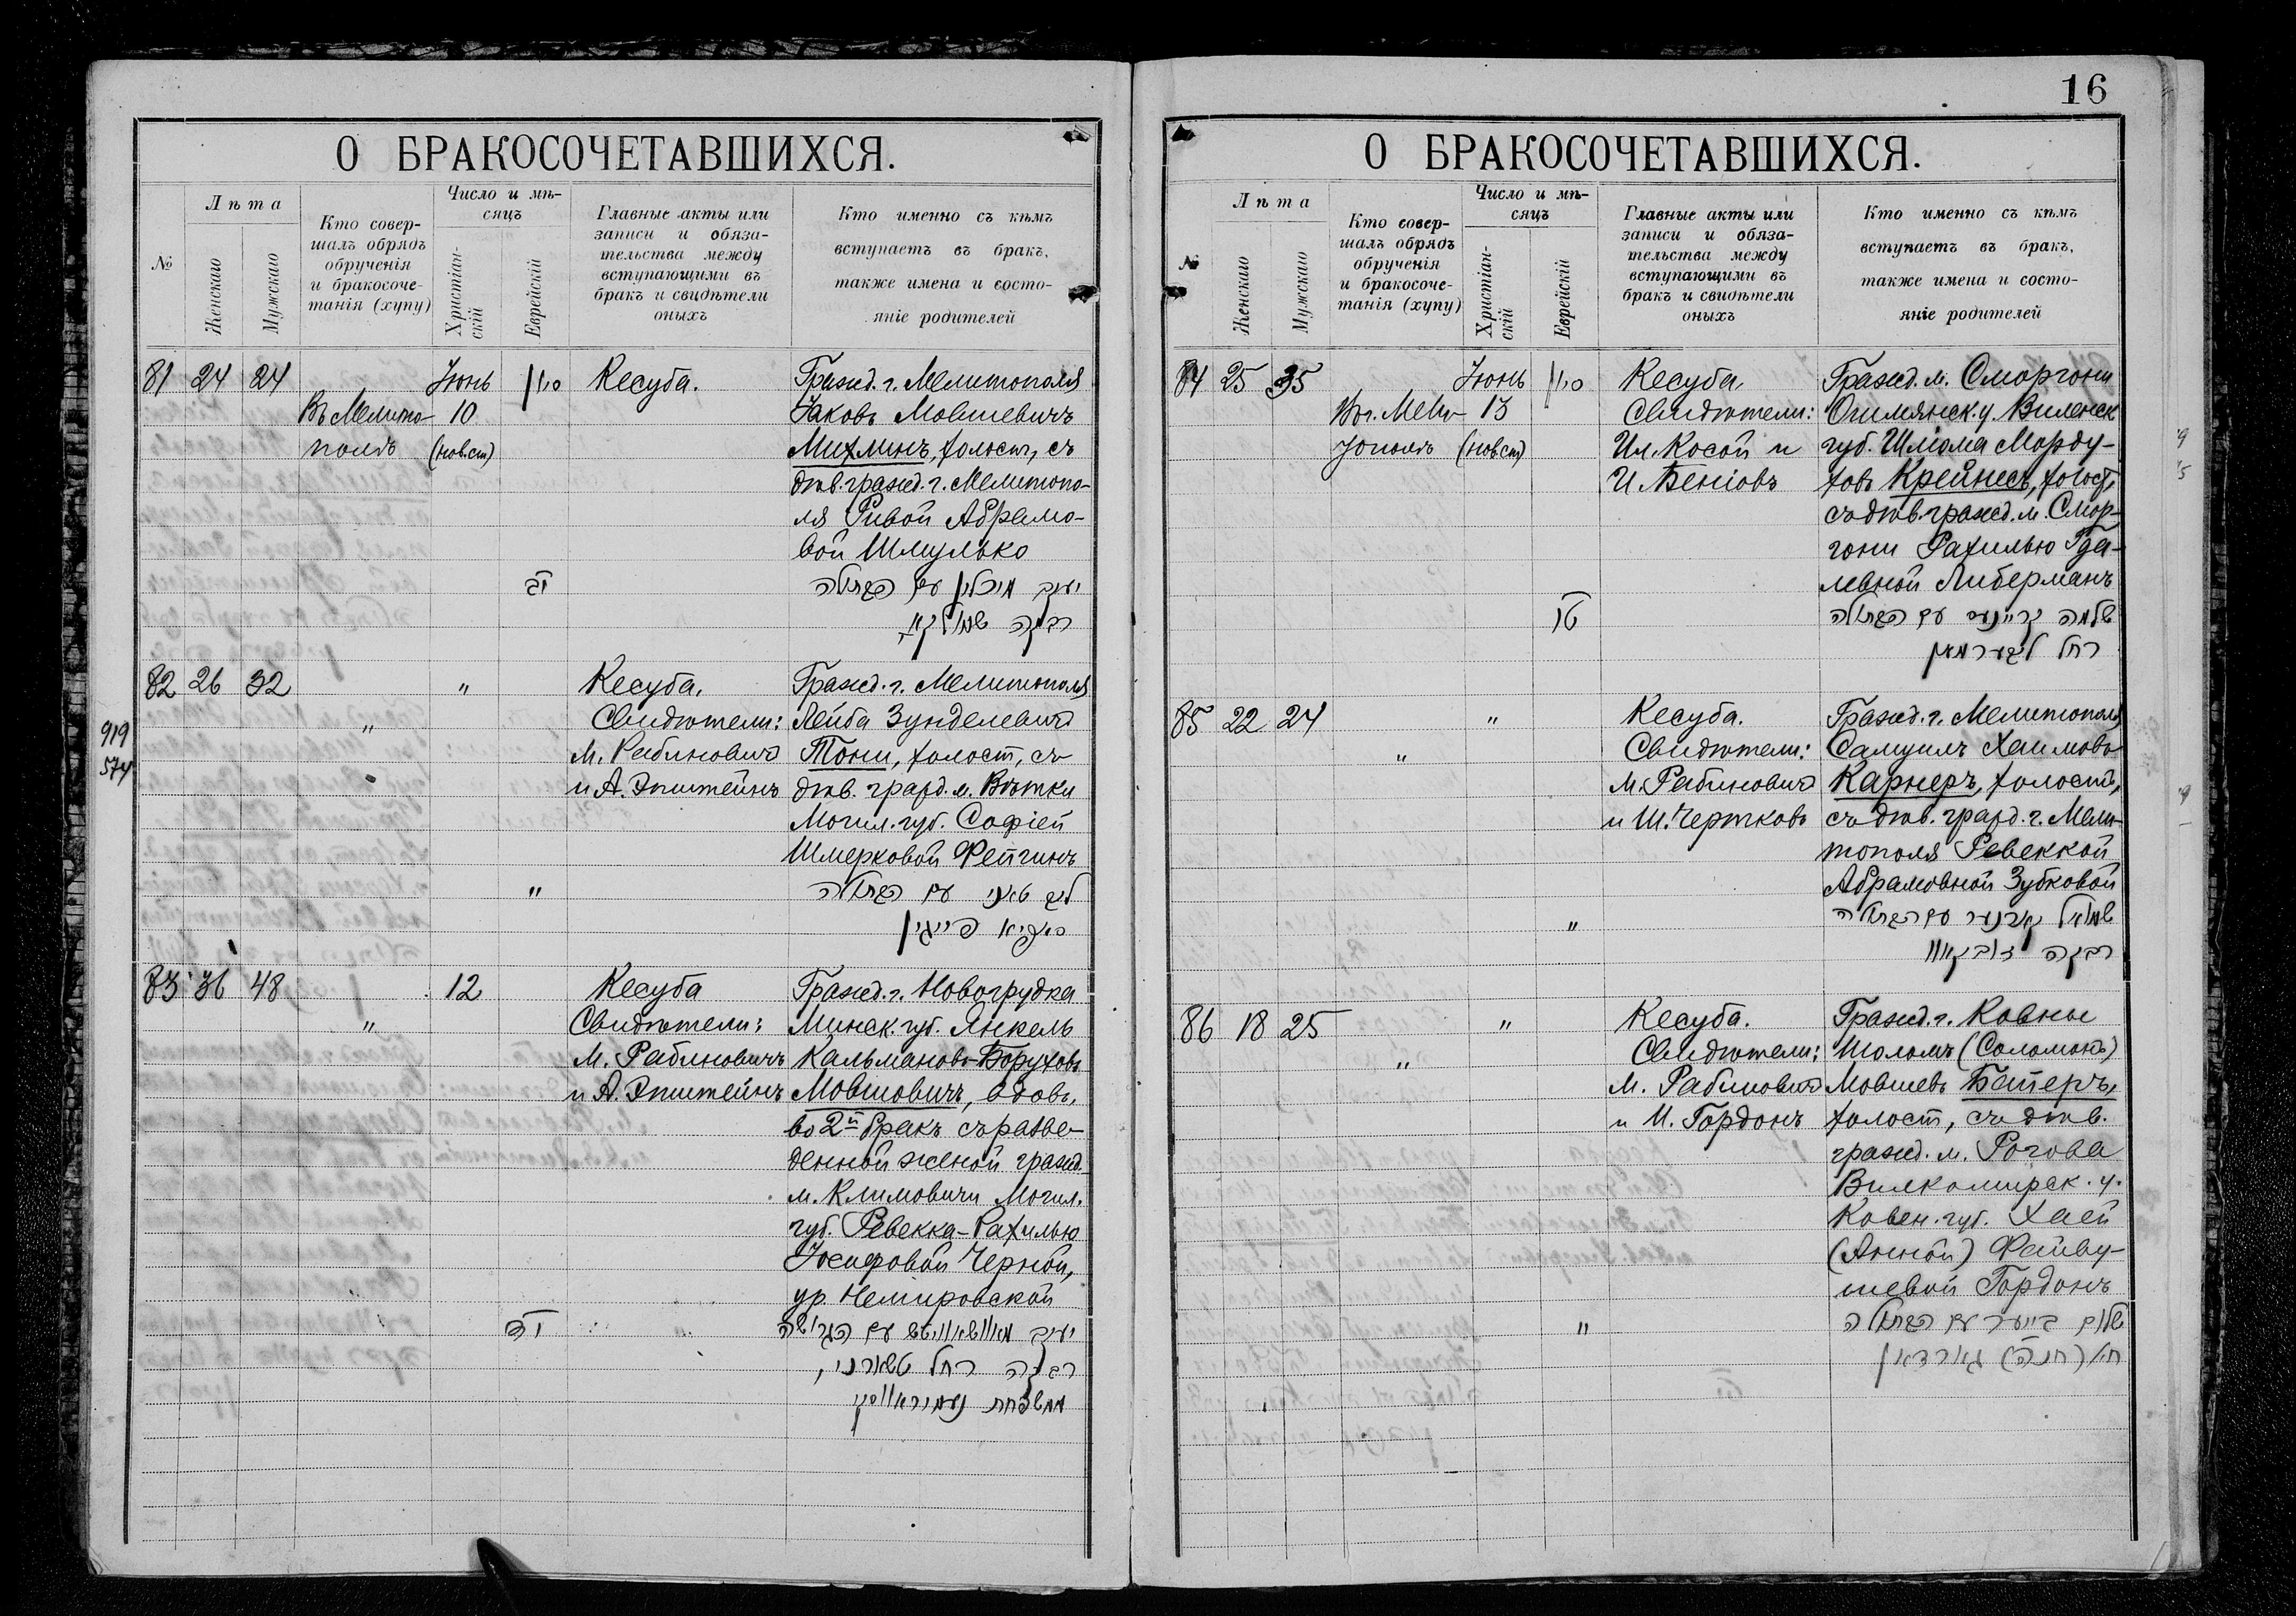 16
О БРАКОСОЧЕТАВШИХСЯ.
№
Лѣта
Женскаго
Мужскаго
Кто совер-
шалъ обрядъ
обрученія
и бракосоче-
танія (хупу)
Число и мѣ-
сяцъ
Христіан-
скій
Еврейскій
Главные акты или
записи и обяза-
тельства между
вступающими въ
бракъ и свидѣтели
оныхъ
Кто именно съ кѣмъ
вступаетъ въ бракъ,
также имена и состо-
яніе родителей
81 24 24
Въ Мелито-
полѣ
Іюнь
10
(нов.ст)
סיון
יב
Кесуба.
Гражд. г. Мелитополя
Яковъ Мовшевичъ
Михлинъ, холост., съ
дѣв. гражд. г. Мелитопо-
ля Ривой Абрамо-
вой Шмулько
יעקב מיכלין עם הבתולה
רבקה שמולקא
919
574
82 26 32
"
"
"
Кесуба.
Свидѣтели:
М. Рабиновичъ
и А. Эпштейнъ
Гражд. г. Мелитополя
Лейба Зунделевичъ
Тони, холост, съ
дѣв. гражд. м. Вѣтки
Могил. губ. Софіей
Шмерковой Фейгинъ
ליב טאני עם הבתולה
סאפיא פייגין
83 36 48
"
12
יד
Кесуба
Свидѣтели:
М. Рабиновичъ
и А. Эпштейнъ
Гражд. г. Новогрудка
Минск. губ. Янкель
Кальмановъ-Боруховъ
Мовшовичъ, вдовъ,
во 2й бракъ съ разве-
денной женой гражд.
м. Климовичи Могил.
губ. Ревекка-Рахилью
Іосифовой Черной,
ур. Немировской
יעקב מאוושאוויטש עם הגרושה
רבקה רחל טשארני,
ממשפחת נעמיראווסקי
О БРАКОСОЧЕТАВШИХСЯ.
№
Лѣта
Женскаго
Мужскаго
Кто совер-
шалъ обрядъ
обрученія
и бракосоче-
танія (хупу)
Число и мѣ-
сяцъ
Христіан-
скій
Еврейскій
Главные акты или
записи и обяза-
тельства между
вступающими въ
бракъ и свидѣтели
оныхъ
Кто именно съ кѣмъ
вступаетъ въ бракъ,
также имена и состо-
яніе родителей
84 25 35
Въ г. Мели-
тополѣ
Іюнь
13
(нов.ст)
סיון
טו
Кесуба
Свидѣтели:
Ил. Косой и
И. Беніовъ
Гражд. м. Сморгони
Ошмянск. у. Виленск
губ. Шлома Морду-
ховъ Крейнесъ, холост,
съ дѣв. гражд. м. Смор-
гони Рахилью Гда-
левной Либерманъ
שלמה קריינעס עם הבתולה
רחל ליבערמאן
85 22 24
"
"
"
Кесуба.
Свидѣтели:
М. Рабиновичъ
и Ш. Чертковъ
Гражд. г. Мелитополя
Самуилъ Хаимовъ
Карнеръ, холостъ,
съ дѣв. гражд. г. Мели-
тополя Ревеккой
Абрамовной Зубковой
שמואל קארנער עם הבתולה
רבקה זובקאוו
86 18 25
"
"
"
Кесуба.
Свидѣтели:
М. Рабиновичъ
и И. Гордонъ
Гражд. г. Ковны
Шоломъ (Соломонъ)
Мовшевъ Бейеръ,
холост, съ дѣв.
гражд. м. Рогова
Вилкомирск. у.
Ковен. губ. Хаей
(Анной) Файву-
шевой Гордонъ
שלום בייער עם הבתולה
חיה (חנה) גארדאן